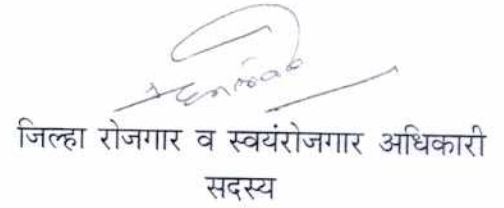 जिल्हा रोजगार व स्वयंरोजगार अधिकारी
सदस्य